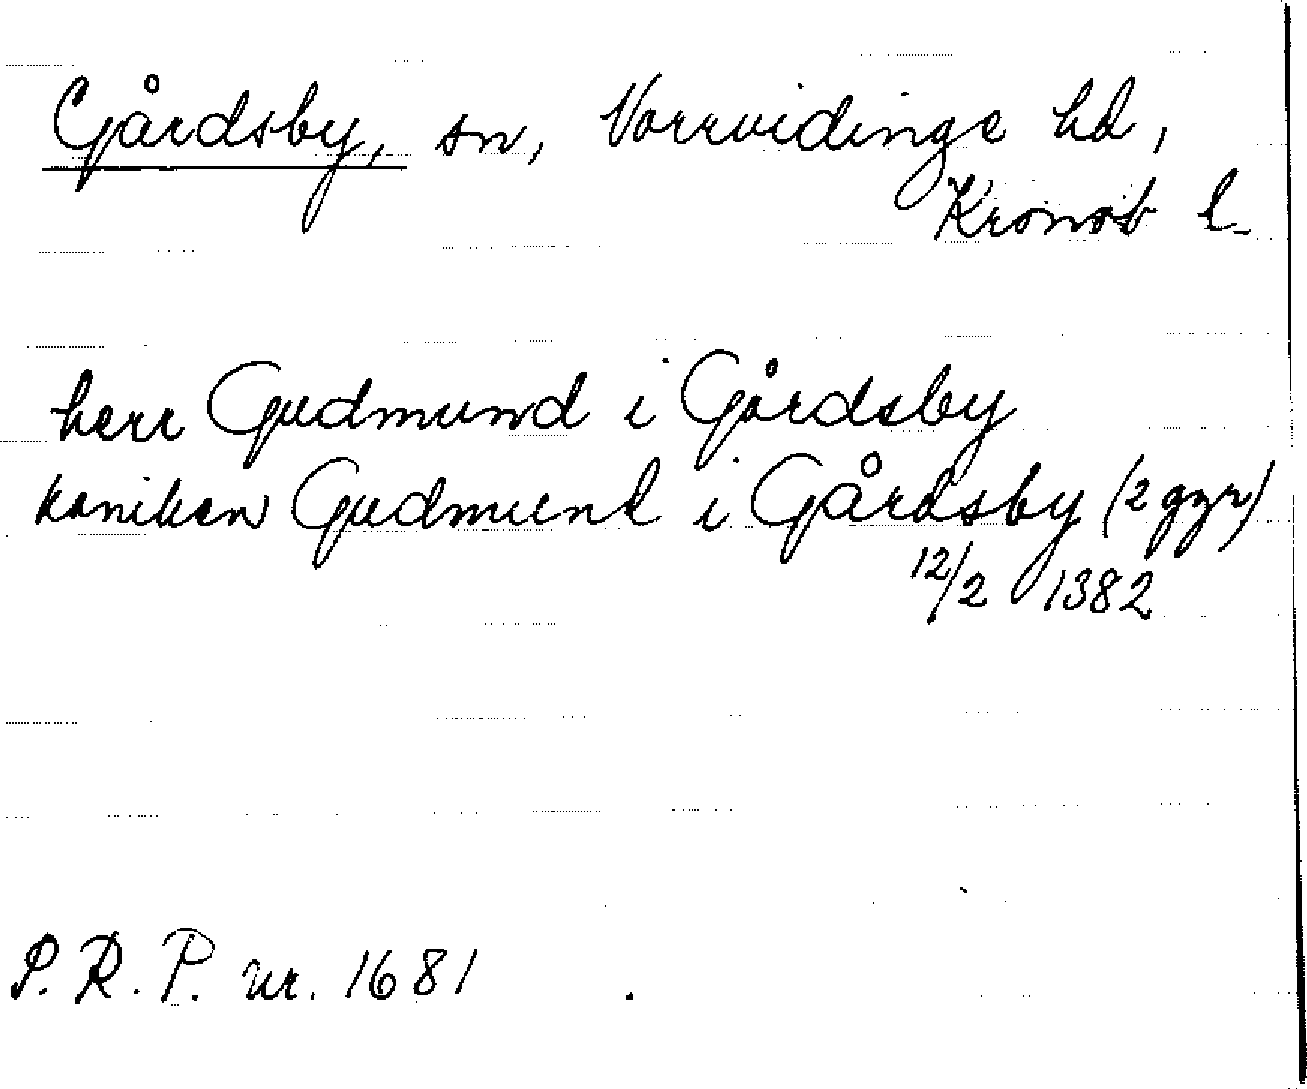 Gårdsby, sn, Norrvidinge hd,
Kronob l.
herr Gudmund i Gårdsby
kaniken Gudmund i Gårdsby (2 ggr)
12/2 1382
S. R. P. nr. 1681